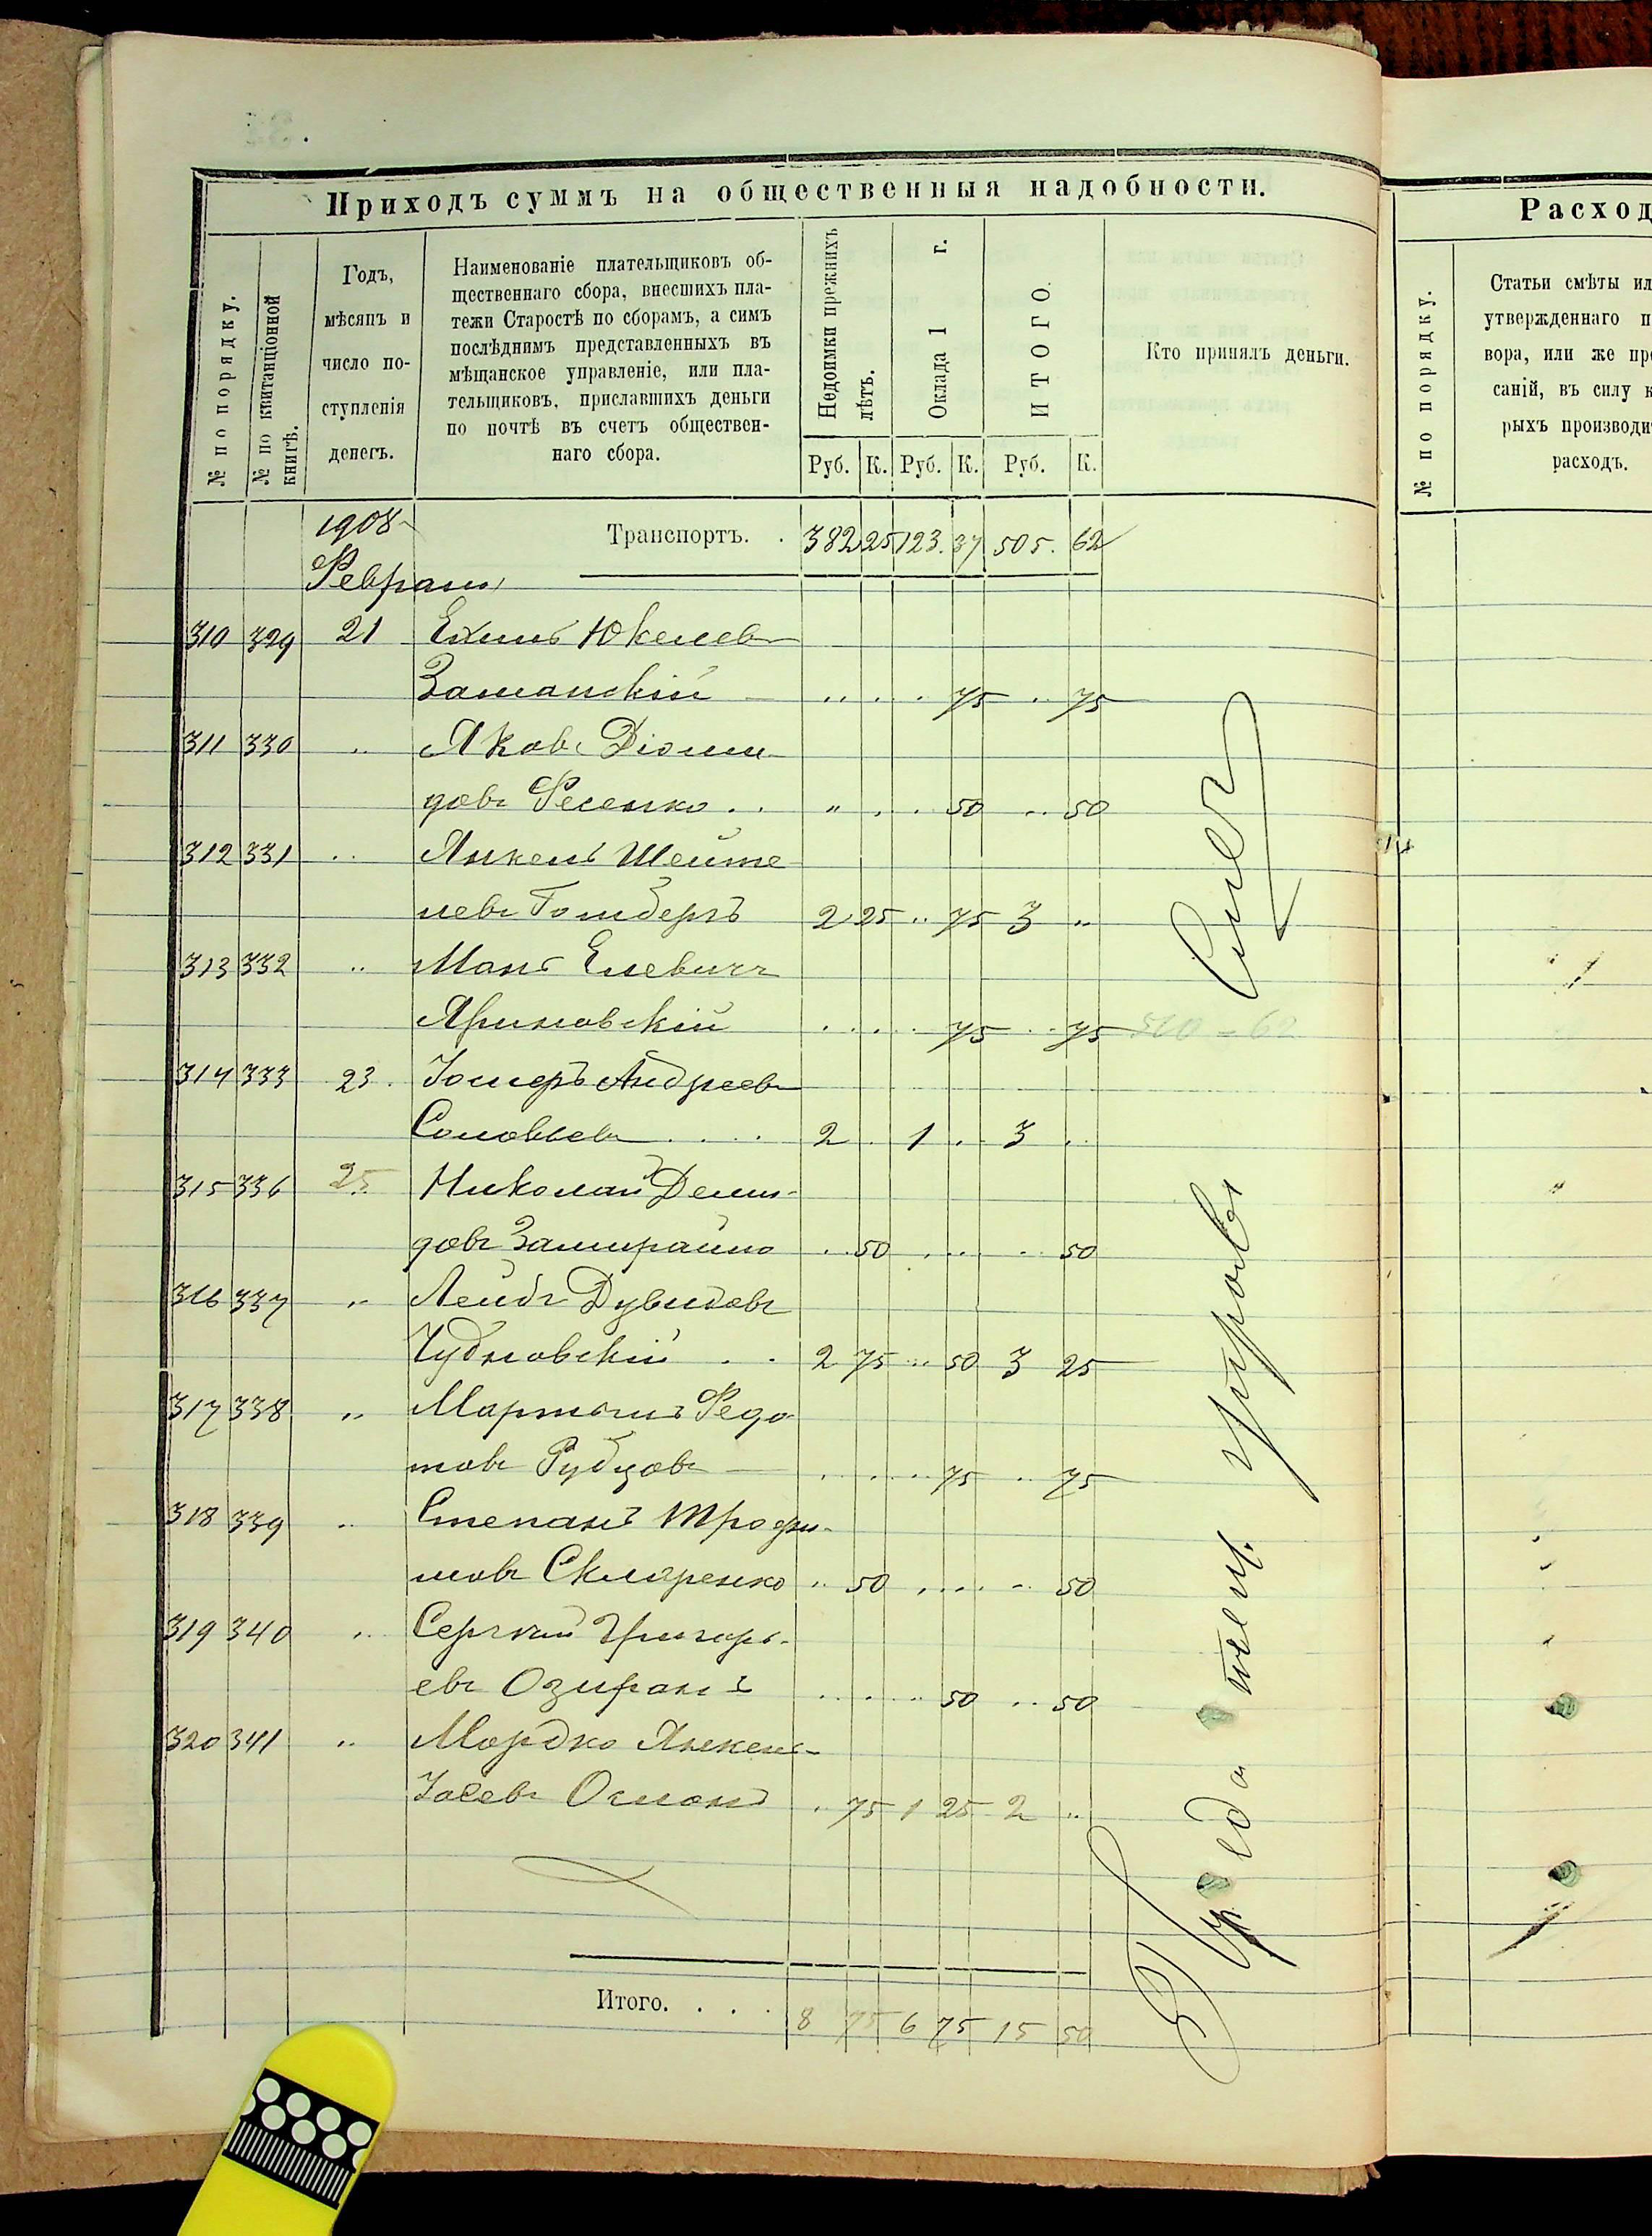 Приходъ суммъ на общественныя надобности.
№ по порядку.
№ по квитанціонной книгѣ.
Годъ,
мѣсяцъ и
число по-
ступленія
денегъ.
Наименованіе плательщиковъ об-
щественнаго сбора, внесшихъ пла-
тежи Старостѣ по сборамъ, а симъ
послѣднимъ представленныхъ въ
мѣщанское управленіе, или пла-
тельщиковъ, приславшихъ деньги
по почтѣ въ счетъ обществен-
наго сбора.
Недоимки прежнихъ
лѣтъ.
Оклада 1 г.
ИТОГО.
Кто принялъ деньги.
Руб. К. Руб. К. Руб. К.
1908 Транспортъ. . 382 25 123. 37 505. 62
Февраль
310 329 21
Заманскій 75 75
311 330 „ Яковъ Діоми-
довъ Фесенко . . „ 50 50
312 331 „ Янкель Шейме
левъ Гомбергъ 2 25 „ 75 3 „
313 332 „ Елевичъ
75 75 510 - 62
314 333 23. Андреевъ
Соловьевъ . . . . 2 . 1 . 3 .
315 336 25 Николай Деми-
довъ Замирайло 50 50
316 337 „ Лейбъ Дувидовъ
Чудновскій . . 2 75 „ 50 3 25
317 338 „ Мартынъ Федо
товъ Рубцовъ 75 75
318 339 „ Степанъ Трофи-
мовъ Скляренко „ 50 50
319 340 „ Сергѣй Григорь-
евъ 50 50
320 341 „ Мордко Янкель-
75 1 25 2 „
Итого. . . . 8 75 6 75 15 50
Расход
№ по порядку.
Статьи смѣты ил
утвержденнаго п
вора, или же пре
саній, въ силу к
рыхъ производи
расходъ.